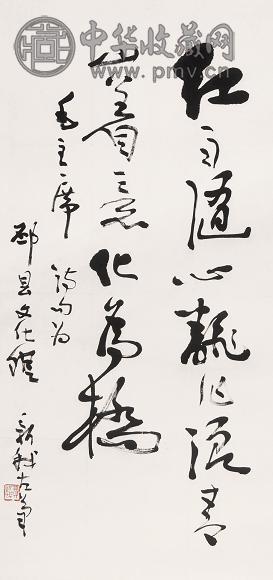 中华收藏网
www.pmv.cn
红雨随心翻作浪青
山着意化為橋
毛主席诗句为
县文化馆
新我左笔